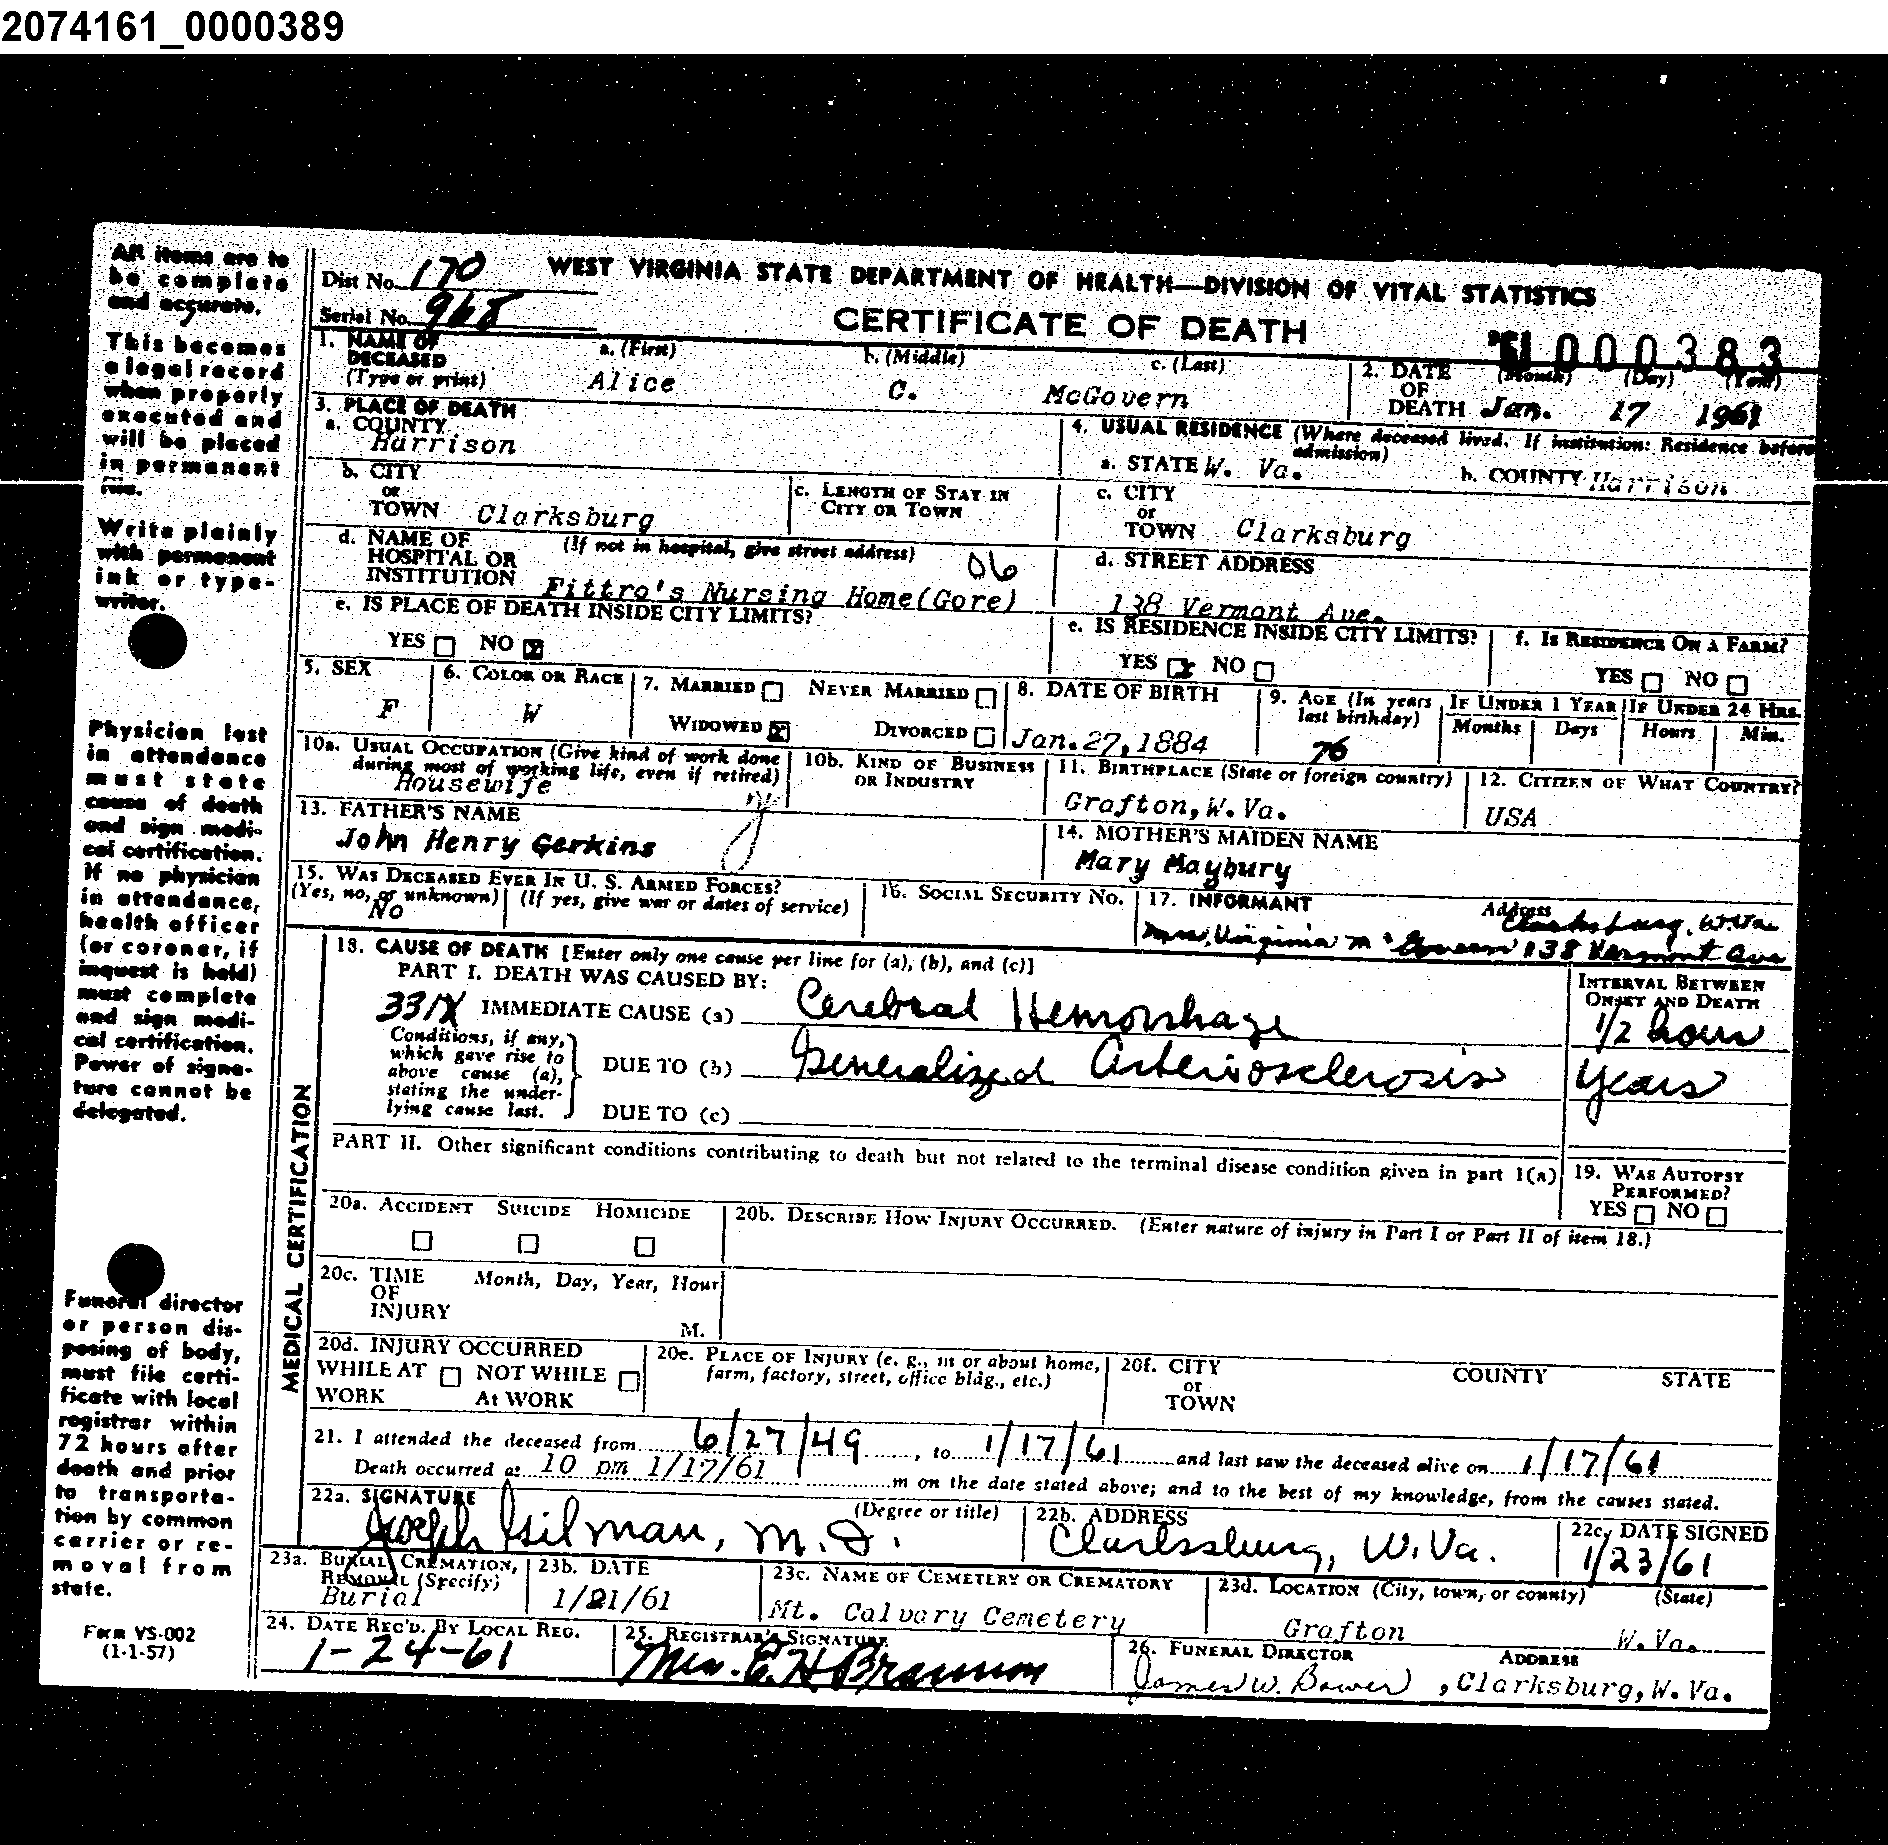 2074161_0000389
All items are to
be complete
and accurate.
This becomes
a legal record
when properly
executed and
will be placed
in permanent
file.
Write plainly
with permanent
ink or type-
writer.
Physician last
in attendance
must state
cause of death
and sign medi-
cal certification.
If no physician
in attendance,
health officer
(or coroner, if
inquest is held)
must complete
and sign medi-
cal certification.
Power of signa-
ture cannot be
delegated.
Funeral director
or person dis-
posing of body,
must file certi-
ficate with local
registrar within
72 hours after
death and prior
to transporta-
tion by common
carrier or re-
moval from
state.
FORM VS-002
(1-1-57)
Dist No. 170 WEST VIRGINIA STATE DEPARTMENT OF HEALTH—DIVISION OF VITAL STATISTICS
Serial No. 968 CERTIFICATE OF DEATH
'61 000383
1. NAME OF DECEASED (Type or print) a. (First) b. (Middle) c. (Last)
Alice C. McGovern
2. DATE OF DEATH (Month) (Day) (Year)
Jan. 17 1961
3. PLACE OF DEATH
a. COUNTY Harrison
4. USUAL RESIDENCE (Where deceased lived. If institution: Residence before admission)
a. STATE W. Va. b. COUNTY Harrison
b. CITY or TOWN Clarksburg c. LENGTH OF STAY IN CITY OR TOWN
c. CITY or TOWN Clarksburg
d. NAME OF HOSPITAL OR INSTITUTION (If not in hospital, give street address) 06
Fittro's Nursing Home(Gore)
d. STREET ADDRESS
138 Vermont Ave.
e. IS PLACE OF DEATH INSIDE CITY LIMITS?
YES NO X
e. IS RESIDENCE INSIDE CITY LIMITS? f. IS RESIDENCE ON A FARM?
YES X NO YES NO
5. SEX F 6. COLOR OR RACE W 7. MARRIED NEVER MARRIED
WIDOWED X DIVORCED
8. DATE OF BIRTH Jan.27,1884
9. AGE (In years last birthday) 76 IF UNDER 1 YEAR IF UNDER 24 HRS.
Months Days Hours Min.
10a. USUAL OCCUPATION (Give kind of work done during most of working life, even if retired)
Housewife
10b. KIND OF BUSINESS OR INDUSTRY
11. BIRTHPLACE (State or foreign country)
Grafton,W.Va.
12. CITIZEN OF WHAT COUNTRY?
USA
13. FATHER'S NAME
John Henry Gerkins
14. MOTHER'S MAIDEN NAME
Mary Maybury
15. WAS DECEASED EVER IN U. S. ARMED FORCES?
(Yes, no, or unknown) (If yes, give war or dates of service)
No
16. SOCIAL SECURITY NO.
17. INFORMANT Address
Clarksburg, W.Va
Mrs. Virginia McGovern 138 Vermont Ave
MEDICAL CERTIFICATION
18. CAUSE OF DEATH [Enter only one cause per line for (a), (b), and (c)]
PART I. DEATH WAS CAUSED BY:
INTERVAL BETWEEN ONSET AND DEATH
331X IMMEDIATE CAUSE (a) Cerebral Hemorrhage 1/2 hour
Conditions, if any, which gave rise to above cause (a), stating the under-lying cause last.
DUE TO (b) Generalized Arteriosclerosis years
DUE TO (c)
PART II. Other significant conditions contributing to death but not related to the terminal disease condition given in part 1(a)
19. WAS AUTOPSY PERFORMED?
YES NO
20a. ACCIDENT SUICIDE HOMICIDE
20b. DESCRIBE HOW INJURY OCCURRED. (Enter nature of injury in Part I or Part II of item 18.)
20c. TIME OF INJURY Month, Day, Year, Hour
M.
20d. INJURY OCCURRED
WHILE AT WORK NOT WHILE At WORK
20e. PLACE OF INJURY (e. g., in or about home, farm, factory, street, office bldg., etc.)
20f. CITY or TOWN COUNTY STATE
21. I attended the deceased from 6/27/49, to 1/17/61 and last saw the deceased alive on 1/17/61
Death occurred at 10 pm 1/17/61 m on the date stated above; and to the best of my knowledge, from the causes stated.
22a. SIGNATURE (Degree or title)
Joseph Gilman, M.D.
22b. ADDRESS
Clarksburg, W.Va.
22c. DATE SIGNED
1/23/61
23a. BURIAL, CREMATION, REMOVAL (Specify)
Burial
23b. DATE
1/21/61
23c. NAME OF CEMETERY OR CREMATORY
Mt. Calvary Cemetery
23d. LOCATION (City, town, or county) (State)
Grafton W.Va.
24. DATE REC'D. BY LOCAL REG.
1-24-61
25. REGISTRAR'S SIGNATURE
Mrs. E. H Brannon
26. FUNERAL DIRECTOR ADDRESS
James W. Bower , Clarksburg, W. Va.